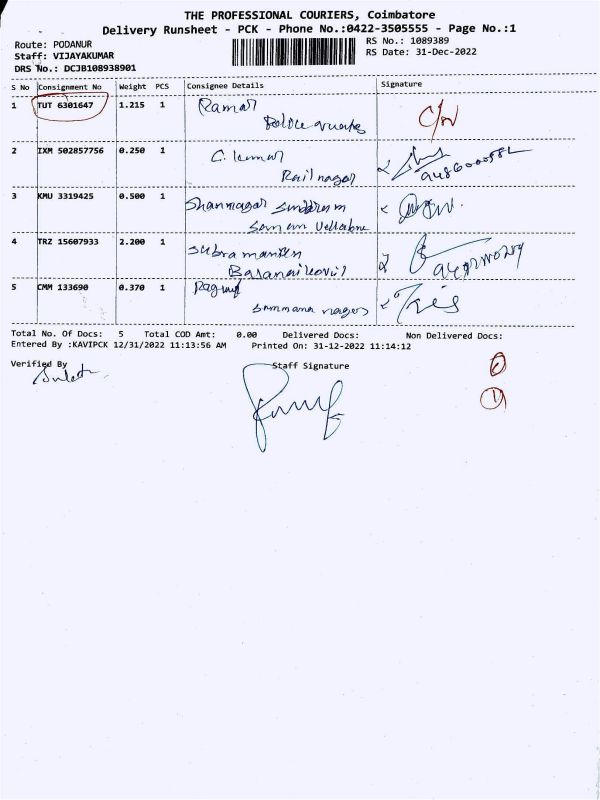 THE PROFESSIONAL COURIERS, Coimbatore
Delivery Runsheet - PCK - Phone No.:0422-3505555 - Page No.:1
Route: PODANUR
Staff: VIJAYAKUMAR
DRS No.: DCJB108938901
RS No.: 1089389
RS Date: 31-Dec-2022
S No Consignment No Weight PCS Consignee Details Signature
1 TUT 6301647 1.215 1 Ramar
2 IXM 502857756 0.250 1 C. kumar
Rail nagar
3 KMU 3319425 0.500 1
4 TRZ 15607933 2.200 1
5 CMM 133690 0.370 1
nagar
Total No. Of Docs: 5 Total COD Amt: 0.00 Delivered Docs: Non Delivered Docs:
Entered By :KAVIPCK 12/31/2022 11:13:56 AM Printed On: 31-12-2022 11:14:12
Verified By Staff Signature